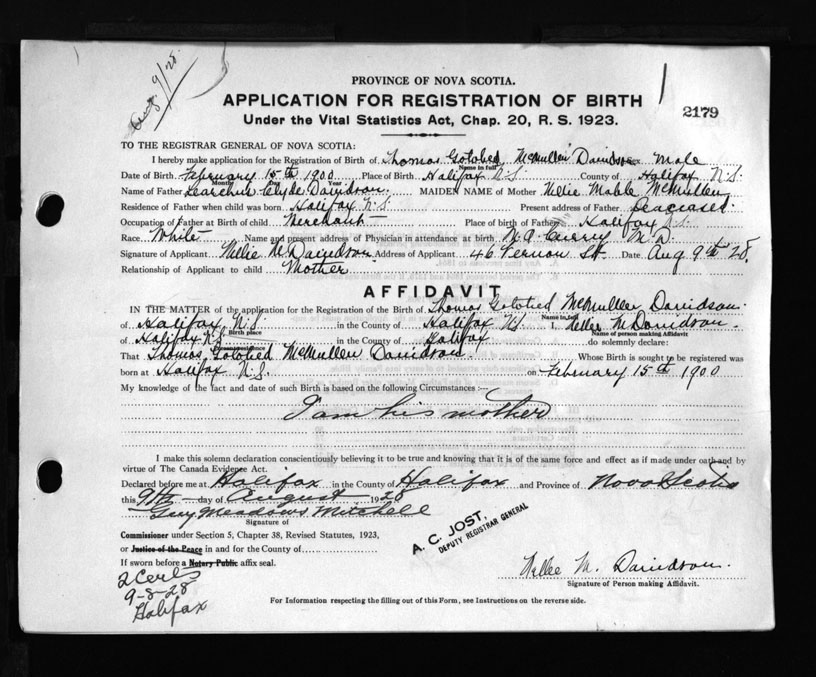 Aug. 9/28.
PROVINCE OF NOVA SCOTIA.
APPLICATION FOR REGISTRATION OF BIRTH
2179
Under the Vital Statistics Act, Chap. 20, R. S. 1923.
TO THE REGISTRAR GENERAL OF NOVA SCOTIA:
I hereby make application for the Registration of Birth of Thomas Gotobed McMullen Davidson Sex Male
Name in full
Date of Birth February 15th 1900 Place of Birth Halifax N S County of Halifax N.S.
Month Day Year
Name of Father Clyde Davidson MAIDEN NAME of Mother Nellie Mable McMullen
Residence of Father when child was born Halifax N.S. Present address of Father
Occupation of Father at Birth of child Merchant Place of birth of Father Halifax N.S.
Race White Name and present address of Physician in attendance at birth M.D.
Signature of Applicant Nellie M Davidson Address of Applicant 46 Vernon St Date Aug 9th 28.
Relationship of Applicant to child Mother
AFFIDAVIT
IN THE MATTER of the application for the Registration of the Birth of Thomas Gotobed McMullen Davidson.
Name in full
of Halifax N.S in the County of Halifax N.S. I, Nellie M Davidson.
Birth place Name of person making Affidavit
of Halifax N.S in the County of Halifax do solemnly declare:
Present residence
That Thomas Gotobed McMullen Davidson. Whose Birth is sought to be registered was
born at Halifax N.S. on February 15th 1900
My knowledge of the fact and date of such Birth is based on the following Circumstances:—
I am his mother
I make this solemn declaration conscientiously believing it to be true and knowing that it is of the same force and effect as if made under oath and by
virtue of The Canada Evidence Act.
Declared before me at Halifax in the County of Halifax and Province of Nova Scotia
this 9th day of August 1928
Guy Meadows Mitchell
Signature of
Commissioner under Section 5, Chapter 38, Revised Statutes, 1923,
or Justice of the Peace in and for the County of
If sworn before a Notary Public affix seal.
A. C. JOST,
DEPUTY REGISTRAR GENERAL
2 Certs
9-8-28
Halifax
Nellie M. Davidson.
Signature of Person making Affidavit.
For Information respecting the filling out of this Form, see Instructions on the reverse side.